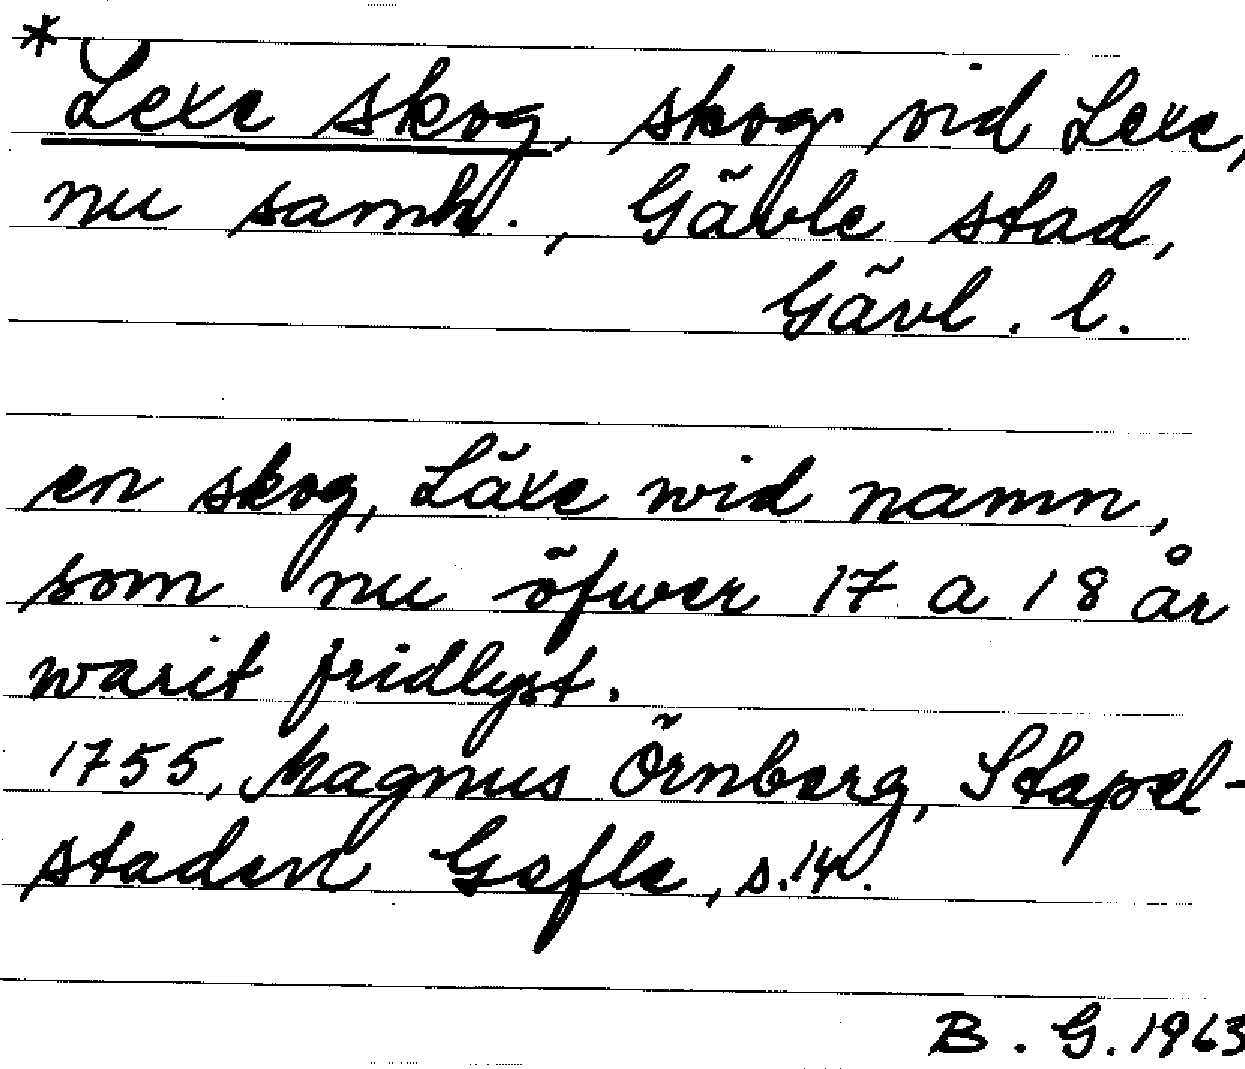 * Lexe skog, skog vid Lexe,
nu samh., Gävle stad,
Gävl. l.
en skog, Läxe wid namn,
som nu öfwer 17 a 18 år
warit fridlyst.
1755, Magnus Örnberg, Stapel-
staden Gefle, s. 14.
B. G. 1963